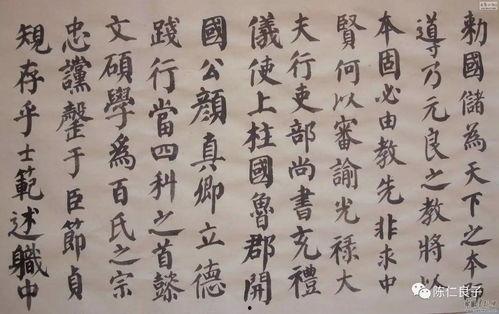 勅國儲為天下之本師
導乃元良之教將以
本固必由教先非求中
賢何以審諭光祿大
夫行吏部尚書充禮
儀使上柱國魯郡開
國公顏真卿立德
踐行當四科之首懿
文碩學為百氏之宗
忠讜罄于臣節貞
規存乎士範述職中
陈仁良子